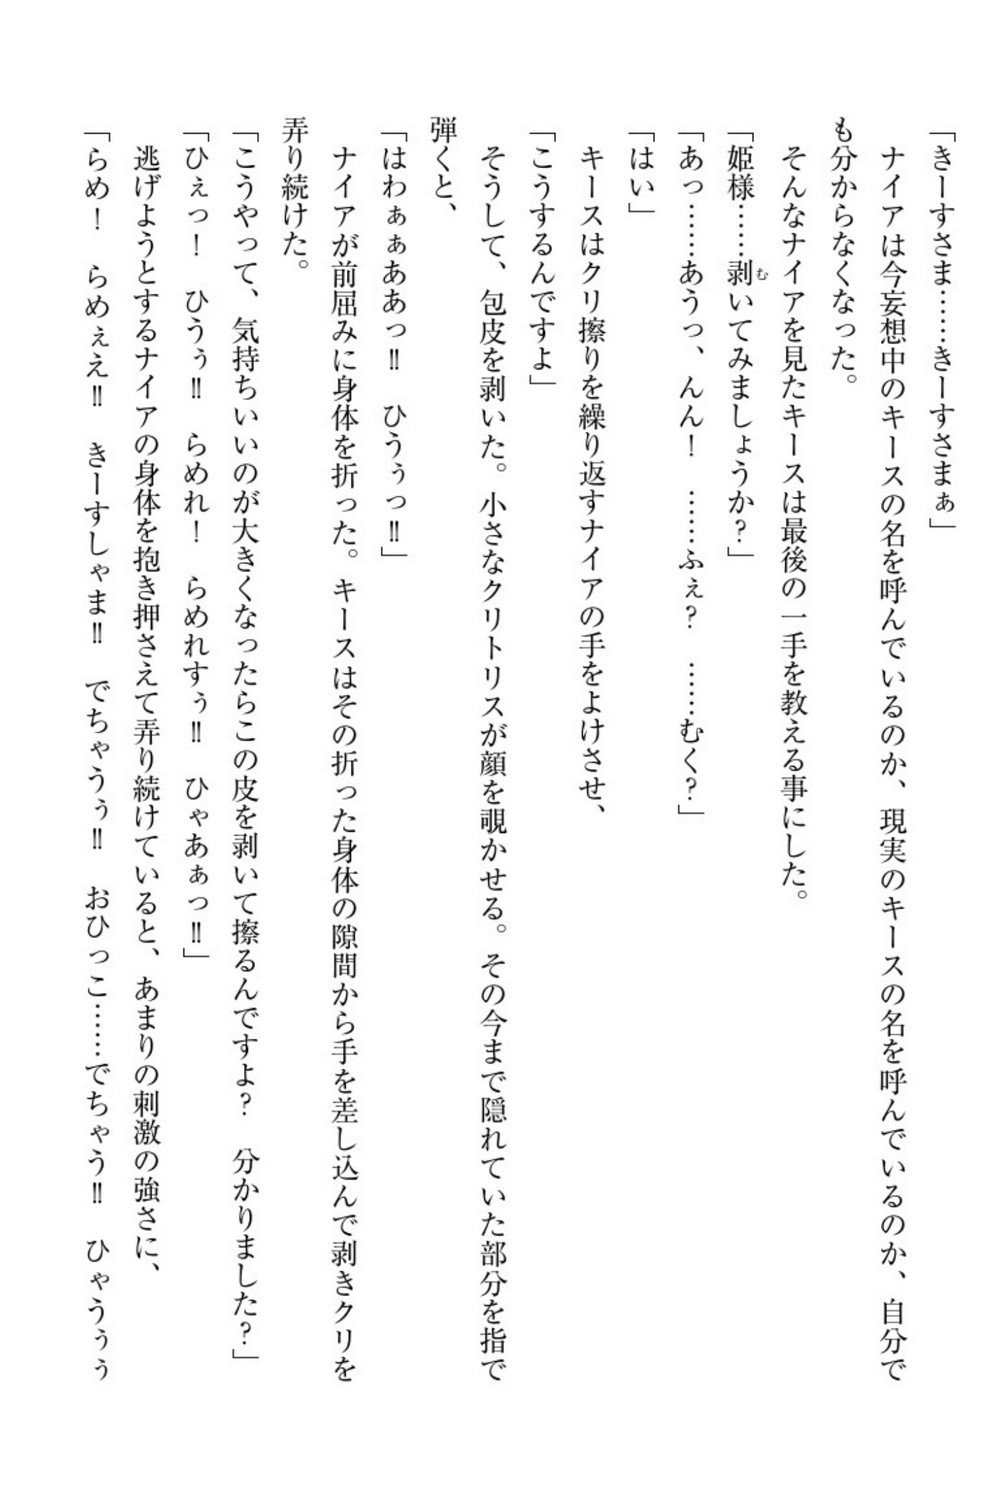 「きーすさま……きーすさまぁ」
　ナイアは今妄想中のキースの名を呼んでいるのか、現実のキースの名を呼んでいるのか、自分で
も分からなくなった。
　そんなナイアを見たキースは最後の一手を教える事にした。
「姫様……剥いてみましょうか？」
「あっ……あうっ、んん！　……ふぇ？　……むく？」
「はい」
　キースはクリ擦りを繰り返すナイアの手をよけさせ、
「こうするんですよ」
　そうして、包皮を剥いた。小さなクリトリスが顔を覗かせる。その今まで隠れていた部分を指で
弾くと、
「はわぁぁああっ‼　ひうぅっ‼」
　ナイアが前屈みに身体を折った。キースはその折った身体の隙間から手を差し込んで剥きクリを
弄り続けた。
「こうやって、気持ちいいのが大きくなったらこの皮を剥いて擦るんですよ？　分かりました？」
「ひぇっ！　ひうぅ‼　らめれ！　らめれすぅ‼　ひゃあぁっ‼」
　逃げようとするナイアの身体を抱き押さえて弄り続けていると、あまりの刺激の強さに、
「らめ！　らめぇえ‼　きーすしゃま‼　でちゃうぅ‼　おひっこ……でちゃう‼　ひゃうぅぅ